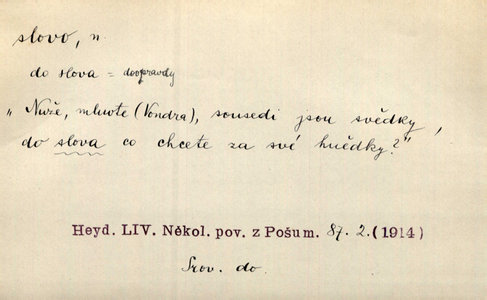 slovo, n.
do slova = doopravdy
„Nuže, mluvte (Vondra), sousedi jsou svědky,
do slova co chcete za své hnědky?"
Heyd. LIV. Někol. pov. z Pošum. 87. 2. (1914)
Srov. do.